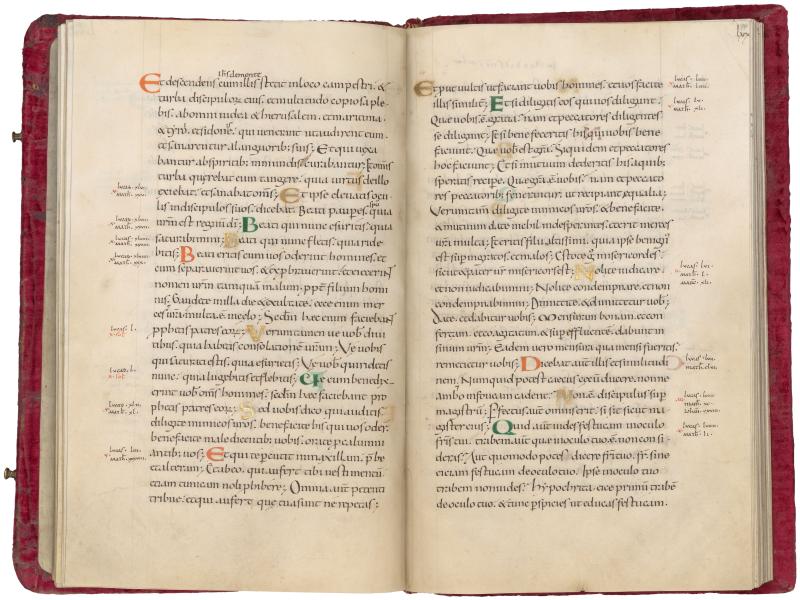 Et descendens cum illis stetit in loco campestri. &
turba discipulorū eius. et multitudo copiosa ple
bis. ab omni iudea & hierusalem. et maritima.
& tyri. et sidonis. qui venerant ut audirent eum.
et sanarentur a languorib; suis; Et qui vexa
bantur a spiritib; inmundis curabantur; & omis
turba querebat eum tangere. quia virtus de illo
exiebat. et sanabat om̄s; Et ipse elevatis ocu
lis in discipulos suos. dicebat. Beati pauperes. quia
ur̄m est regnū dī; Beati qui nunc esuritis. quia
saturabimini; Beati qui nunc fletis. quia ride
bitis; Beati eritis cum vos oderint homines. et
cum separaverint vos. & exprobraverint. et eiecerint
nomen vr̄m tamquam malum. ppt̄ filium homi
nis. Gaudete in illa die & exultate. ecce enim mer
ces vr̄a multa ē in celo; Sedm̄ haec enim faciebant
pphetis patres eorū; Verumtamen ve vob diui
tibus. quia habetis consolationē vr̄am; Ve vobis
qui saturati estis. quia esurietis; Ve vob qui ridetis
nunc. quia lugebitis et flebitis; Ve cum benedix
erint vob om̄s homines. sedm̄ haec faciebant pro
phetis patres eorū; Sed vobis dico qui auditis.
diligite inimicos vr̄os. benefacite his qui vos oder̄.
benefacite male dicentib; vobis. orate p calumni
antib; vos; Et qui te percutit in maxillam. p̄be
et alteram; Et ab eo qui aufert tibi vestimentū.
etiam tunicam noli phibere; Omni aut̄ petenti
tribue. et qui aufert que tua sunt ne repetas;
Et put vultis ut faciant vobis homines. et vos facite
illis similit̄; Et si diligitis eos qui vos diligunt.
Que vobis ē gratia? nam et peccatores diligentes
se diligunt; Et si benefeceritis his qui vobis bene
faciunt. Que vob est grā; Siquidem et peccatores
hoc faciunt; Et si mutuum dederitis his a quib;
speratis recipe. Que grā ē vobis. nam et peccato
res peccatorib; fenerantur. ut recipiant equalia;
Verumtam diligite inimicos vr̄os. & benefacite.
& mutuum date nichil inde sperantes. et erit merces
vr̄a multa; et eritis filii altissimi. quia ipse benign'
est sup ingratos et malos; Estote g misericordes.
sicut & pater vr̄ misericors est; Nolite iudicare.
et non iudicabimini; Nolite condempnare. et non
condempnabimini; Dimittite. & dimittetur vob;
Date. et dabitur vobis; Mensuram bonam. et con
fertam. et coagitatam. & supeffluentē. dabunt in
sinum vr̄m; Eadem vero mensura qua mensi fueritis.
remetietur vobis; Dicebat aut̄ illis et similitudi
nem; Numquid potest caecus cecū ducere. nonne
ambo in foveam cadent; Non ē discipulus sup
magistrū; Pfectus aut̄ omnis erit. si sit sicut ma
gister eius; Quid aut̄ vides festucam in oculo
fr̄is tui. trabem aut̄ que in oculo tuo ē non consi
deras? Aut quomodo potes dicere fr̄i tuo. fr̄. sine
eiciam festucam de oculo tuo. Ipse in oculo tuo
trabem non vides? Hypochrita. eice primū trabē
de oculo tuo. & tunc pspicies ut educas festucam.